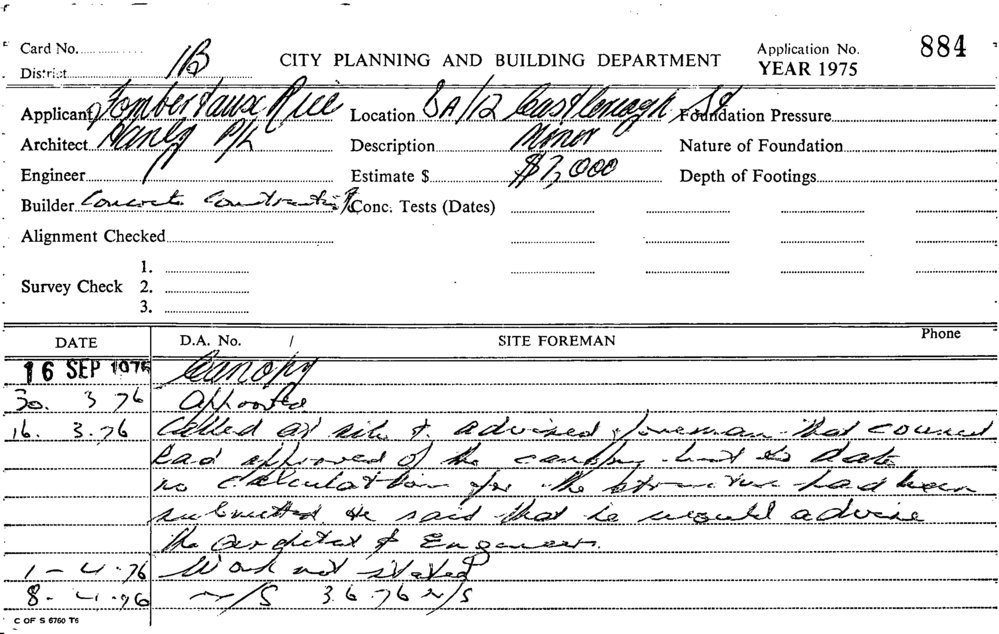 Card No. CITY PLANNING AND BUILDING DEPARTMENT Application No. 884
District 1B YEAR 1975
Applicant Fombertaux Rice Location 8A/12 Castlereagh St Foundation Pressure
Architect Hanly P/L Description Minor Nature of Foundation
Engineer Estimate $ $7,000 Depth of Footings
Builder Concrete Constructions Conc. Tests (Dates)
Alignment Checked
1.
Survey Check 2.
3.
DATE D.A. No. / SITE FOREMAN Phone
16 SEP 1975 Canopy
30. 3 76 Approved
16. 3.76 Called at site & advised foreman that council
had approved of the canopy but to date
no calculations for the structure had been
submitted He said that he would advise
the Architect & Engineer.
1-4.76 Work not started
8-4.76 N/S 3.6.76 N/S
C OF S 6760 T6